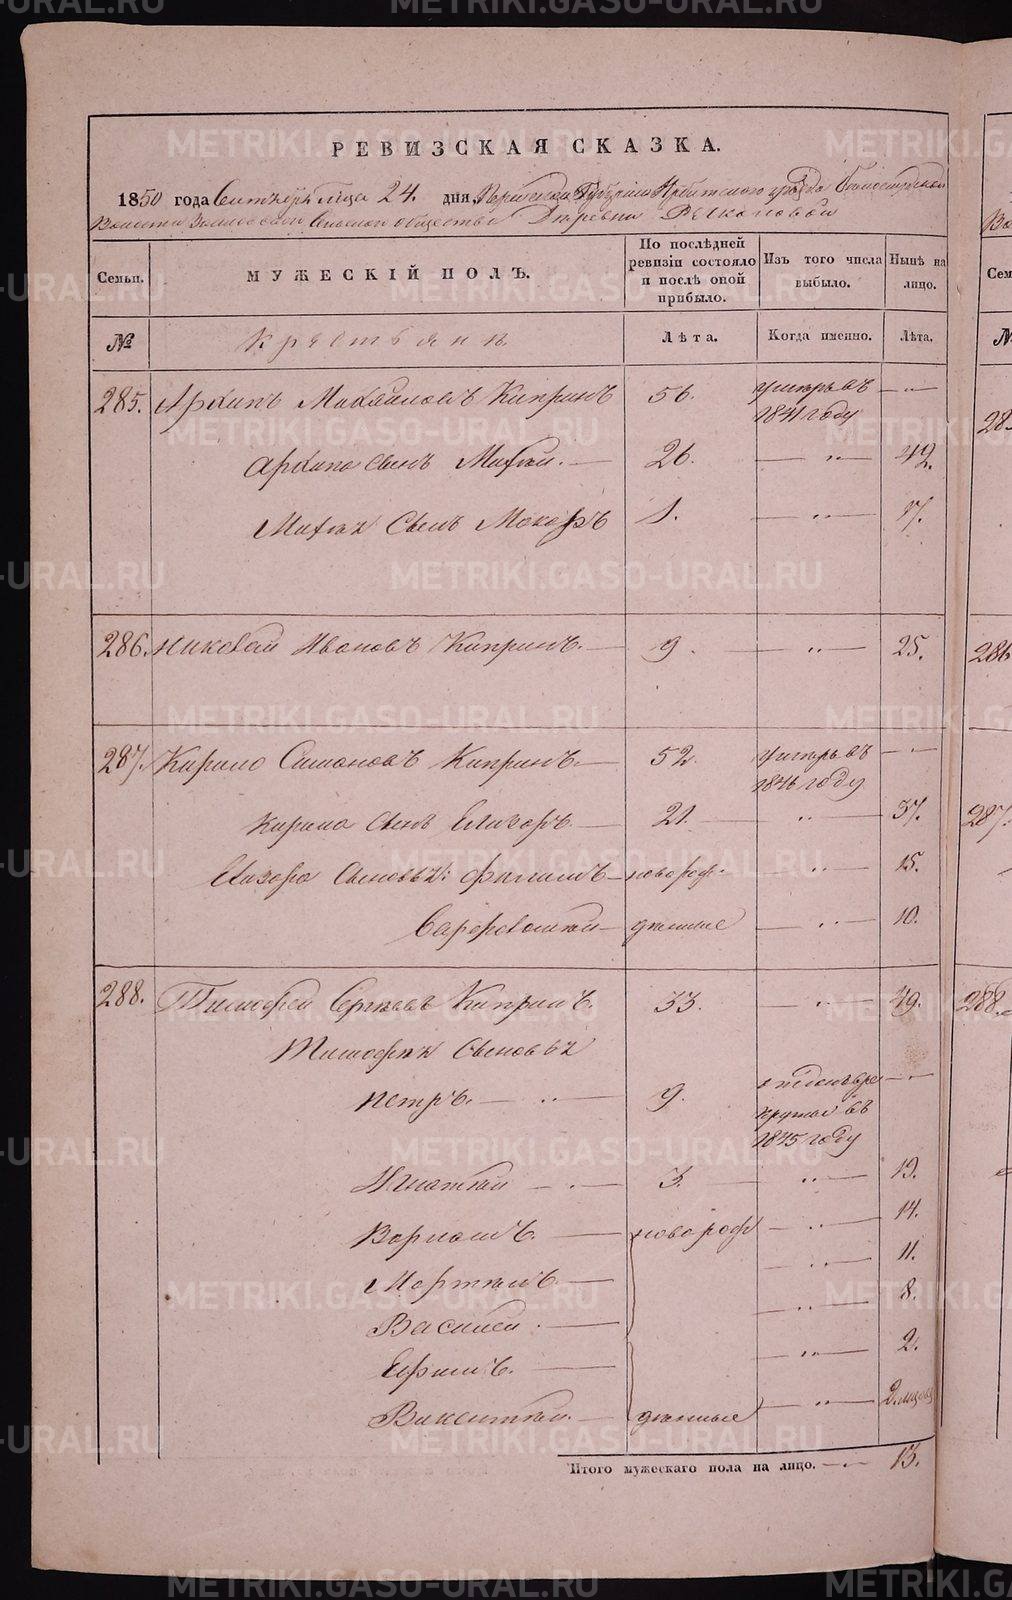 РЕВИЗСКАЯ СКАЗКА.
1850 года Сентября м҃ца 24. дня, Пермской Губернии Ирбитского уѣзда
Волости Сельскаго общества Деревни Речкаловой
Семьи. МУЖЕСКІЙ ПОЛЪ. По послѣдней ревизіи состояло и послѣ оной прибыло. Изъ того числа выбыло. Нынѣ на лицо.
№ Крестьяне Лѣта. Когда именно. Лѣта.
285. Архипъ Михайловъ Кипринъ 56. умеръ въ 1841 году — „ —
Архипа сынъ Матѳѣй. — 26. — „ — 42.
Матѳѣя Сынъ Макаръ 1. — „ — 17.
286. Николай Ивановъ Кипринъ. — 9. — „ — 25.
287. Кирило Симоновъ Кипринъ. — 52. умеръ въ 1846 году — „ —
Кирила сынъ Елизаръ. — 21. — „ — 37.
Елизара Сыновья: Филипъ — новорож- — „ — 15.
Варфоломей — денные — „ — 10.
288. Тимофей Сергѣевъ Кипринъ. 33. — „ — 49.
Тимофѣя Сыновья
Петръ. — „ — 9. в рекруты въ 1845 году — „ —
Игнатѣй — „ — 3. — „ — 19.
Варламъ. — новорож — „ — 14.
Мартынъ. — — „ — 11.
Василей. — — „ — 8.
Ефимъ. — — „ — 2.
Викентѣй. — денные — „ — 2. месяца
Итого мужескаго пола на лицо. — „ — 13.
METRIKI.GASO-URAL.RU